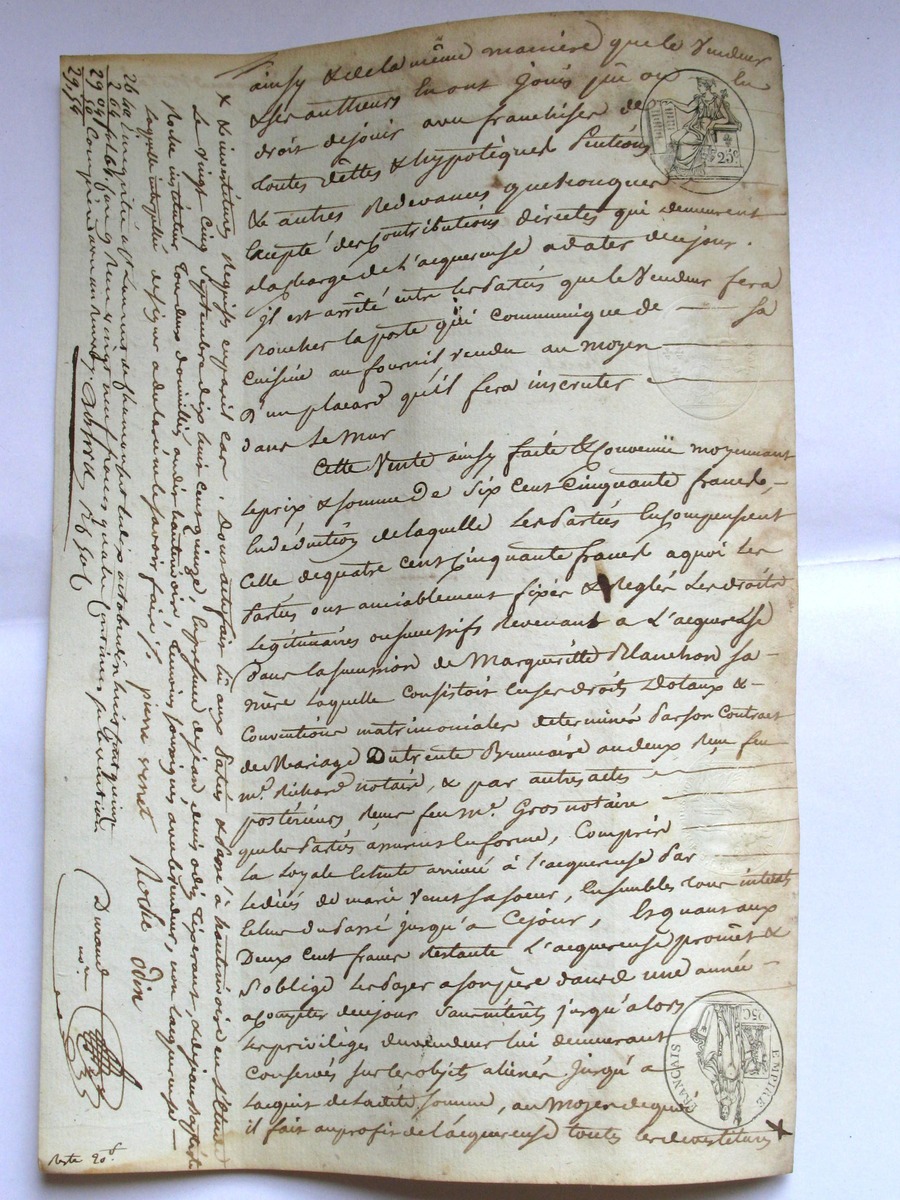 ainsy & de la même manière que le Vendeur
& ses autheurs en ont jouis pû ou dû
droit de jouir avec franchises de
toutes dettes & hypotèques Pentions
& autres Redevances quelconques
Excepté des Contributions directes qui demeurent
a la charge de L'acquereuse a dater de ce jour.
il est arrêté entre les Partiës que le Vendeur fera
boucher la porte qui Communique de sa
Cuisine au fournil vendu au moyen
D'un placard qu'il fera inscruter
dans Le Mur
Cette Vente ainsy faite & Convenuë moyennant
le prix & somme De Six Cent Cinquante francs,
En déduction de laquelle Les Partiës En Compensent
Celle de quatre Cent Cinquante francs a quoi les
Partiës ont amiablement fixés & Reglés Les droits
Légitimaires ou successifs Revenant a L'acquereuse
Dans la succession de Margueritte Planchon sa
mère Laquelle Consistoit En ses droits Dotaux &
Conventions matrimoniales determinés Par son Contract
de Mariage Du trente Brumaire an deux Reçu feu
Me. Richard notaire, & par autres actes
postérieurs Reçus feu Me. Gros notaire
que les Partiës assurent En forme, Compris
La Loyale Echute arrivée à l'acquereuse Par
le décès de marie Venet sa soeur, Ensembles Tous interets
Echus du Passé jusqu'à Ce jour, Et quant aux
Deux Cent francs Restants L'acquereuse promet &
s'oblige Les Payer a son frère dans une année
a compter de ce jour Sans intérêts jusqu'alors
Les privilèges du vendeur lui demeurant
Conservés sur les objets aliénés Jusqu'à
L'acquit de Ladite Somme, au Moyen de quoi
il fait au profit de L'acquereuse toutes les devestitures X
25 C.
EMPIRE FRANÇAIS
25 C
X & investitures Requises en pareil cas. Dont acte fait Lû aux Partiës & Passé à hautrivoire en L'Etude
Le vingt Cinq Septembre dix huit cent quinze, En presence de jean denis odin Tisserant, & de jean Baptiste
Roche instituteur Tous deux domiciliés audit hautrivoire, Temoins soussignés avec le vendeur, non L'acquereuse
Laquelle interpellée de signer a declaré ne le savoir faire. pierre venet Roche odin
Durand
nore.
Reçu vingt neuf francs quatre Centimes
Compris
26
29 04
29,54
Reste 20 s.